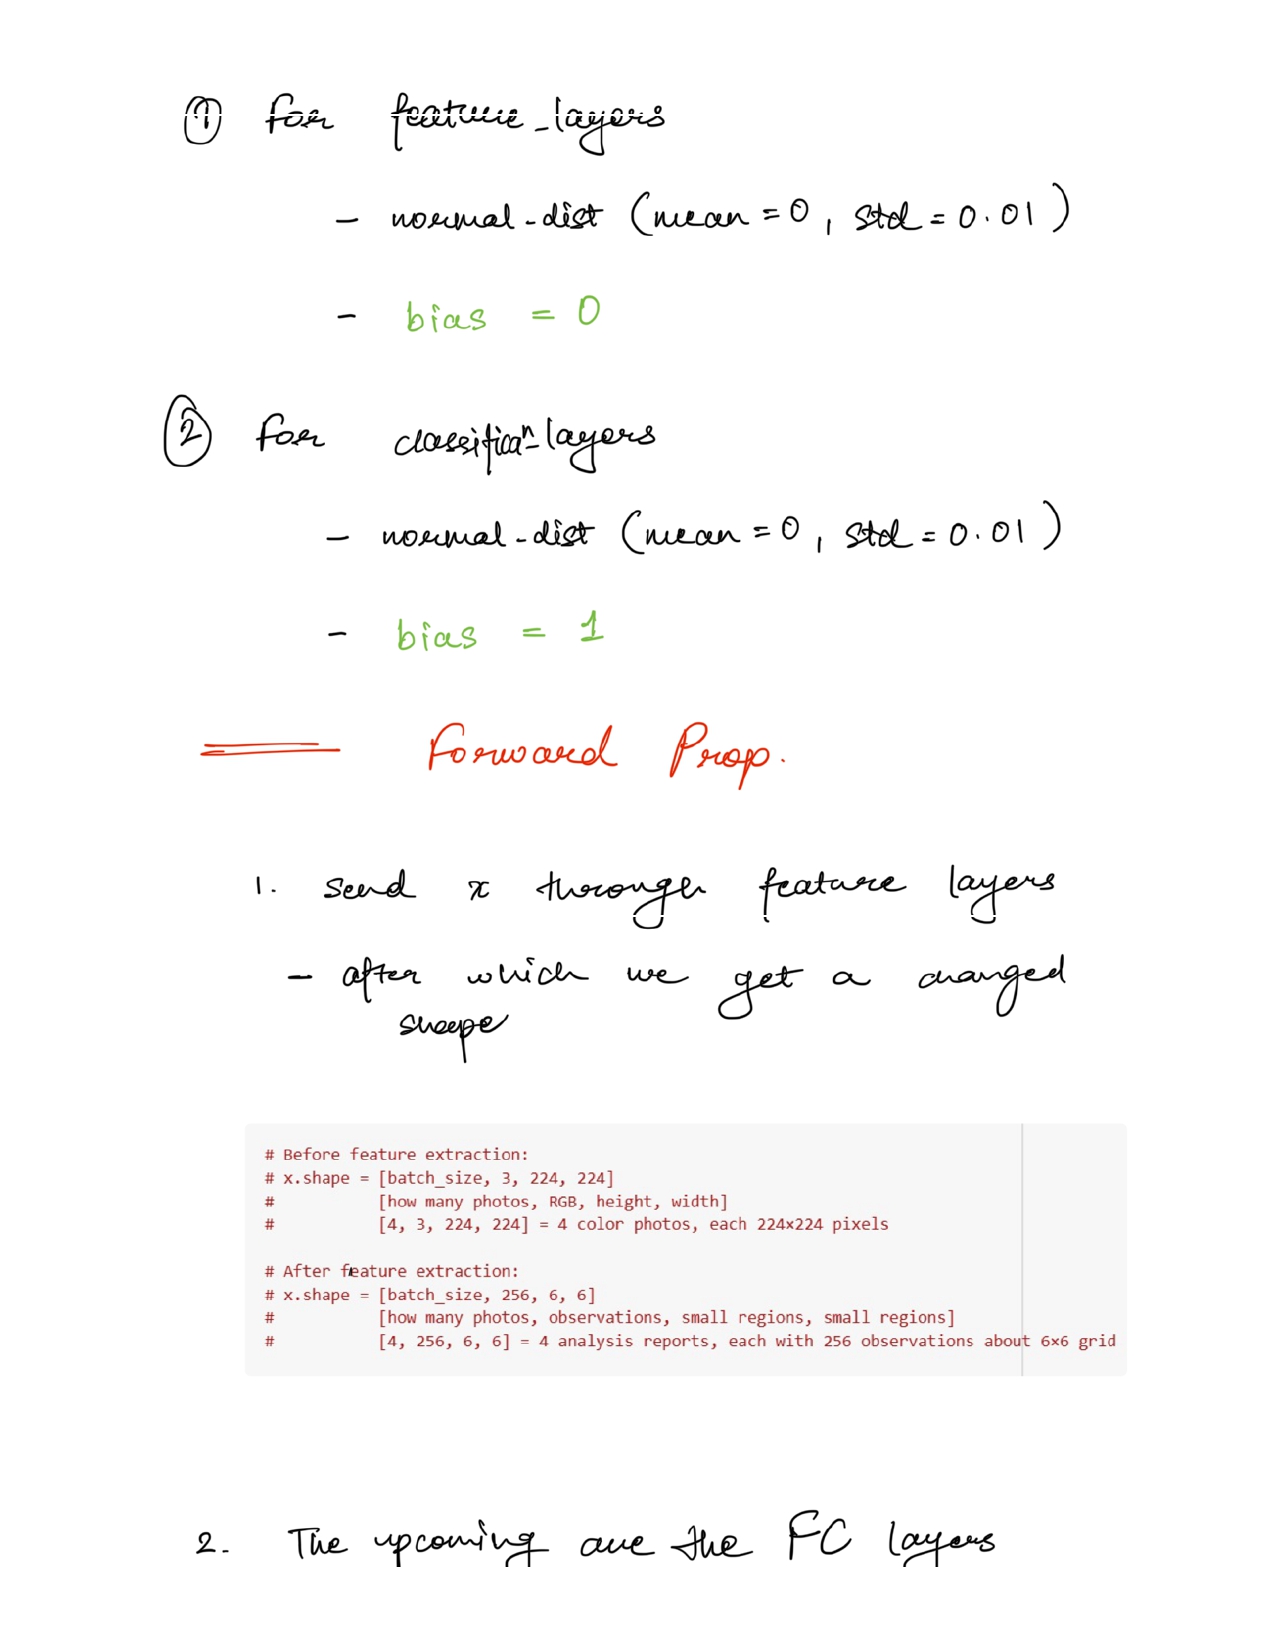 ① for feature_layers
- normal-dist (mean = 0, std = 0.01)
- bias = 0
② for classificaⁿ-layers
- normal-dist (mean = 0, std = 0.01)
- bias = 1
Forward Prop.
1. send x through feature layers
- after which we get a changed
shape
# Before feature extraction:
# x.shape = [batch_size, 3, 224, 224]
# [how many photos, RGB, height, width]
# [4, 3, 224, 224] = 4 color photos, each 224×224 pixels
# After feature extraction:
# x.shape = [batch_size, 256, 6, 6]
# [how many photos, observations, small regions, small regions]
# [4, 256, 6, 6] = 4 analysis reports, each with 256 observations about 6×6 grid
2. The upcoming are the FC layers